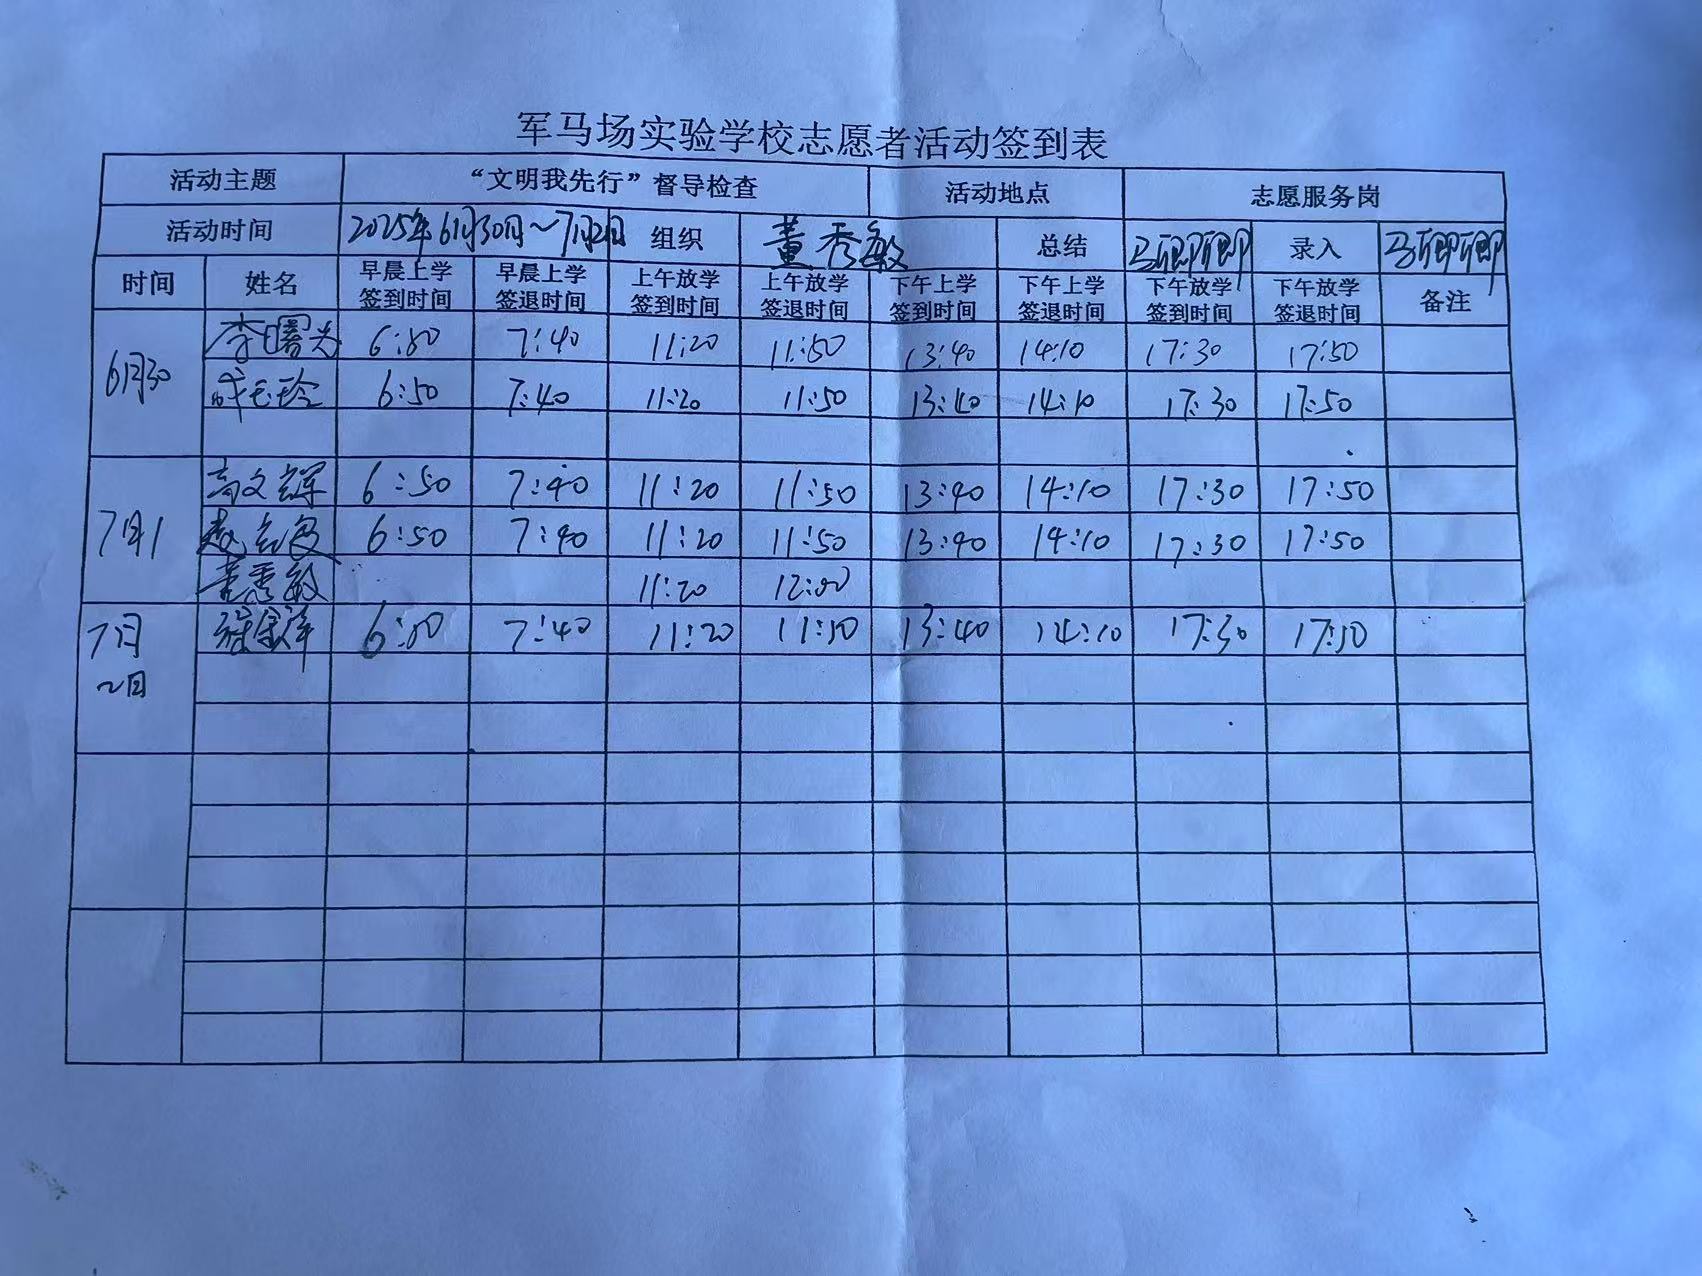 军马场实验学校志愿者活动签到表
活动主题 “文明我先行”督导检查 活动地点 志愿服务岗
活动时间 2025年6月30日~7月2日 组织 董秀敏 总结 录入
时间 姓名 早晨上学签到时间 早晨上学签退时间 上午放学签到时间 上午放学签退时间 下午上学签到时间 下午上学签退时间 下午放学签到时间 下午放学签退时间 备注
6月30 李曙光 6:50 7:40 11:20 11:50 13:40 14:10 17:30 17:50
6:50 7:40 11:20 11:50 13:40 14:10 17:30 17:50
7月1 高文辉 6:50 7:40 11:20 11:50 13:40 14:10 17:30 17:50
6:50 7:40 11:20 11:50 13:40 14:10 17:30 17:50
董秀敏 11:20 12:00
7月2日 6:50 7:40 11:20 11:50 13:40 14:10 17:30 17:50